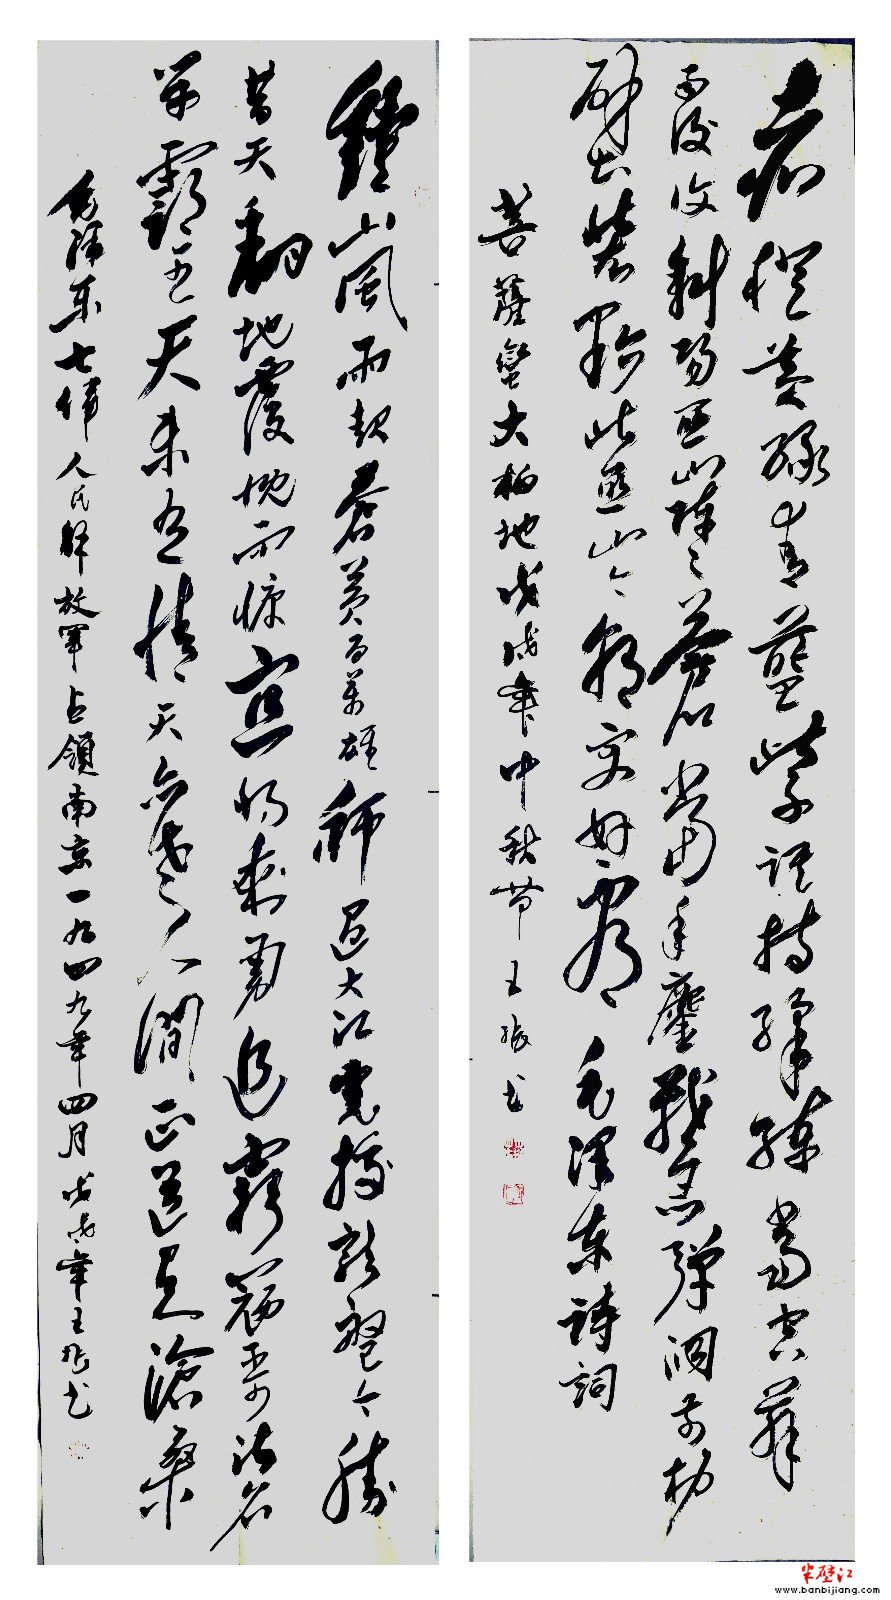 赤橙黄绿青蓝紫谁持彩练当空舞
雨后复斜阳关山阵々苍当年鏖战急弹洞前村
壁装点此关山今朝更好看 毛泽东诗词
菩萨蛮大柏地戊戌年中秋节王振书
鍾山風雨起蒼黄百萬雄師过大江虎踞龙盘今勝
昔天翻地覆慨而慷宜将剩勇追窮寇不可沽名
学霸王天若有情天亦老人间正道是滄桑
毛泽东七律人民解放军占领南京一九四九年四月戊戌年王振书
半壁江
www.banbijiang.com